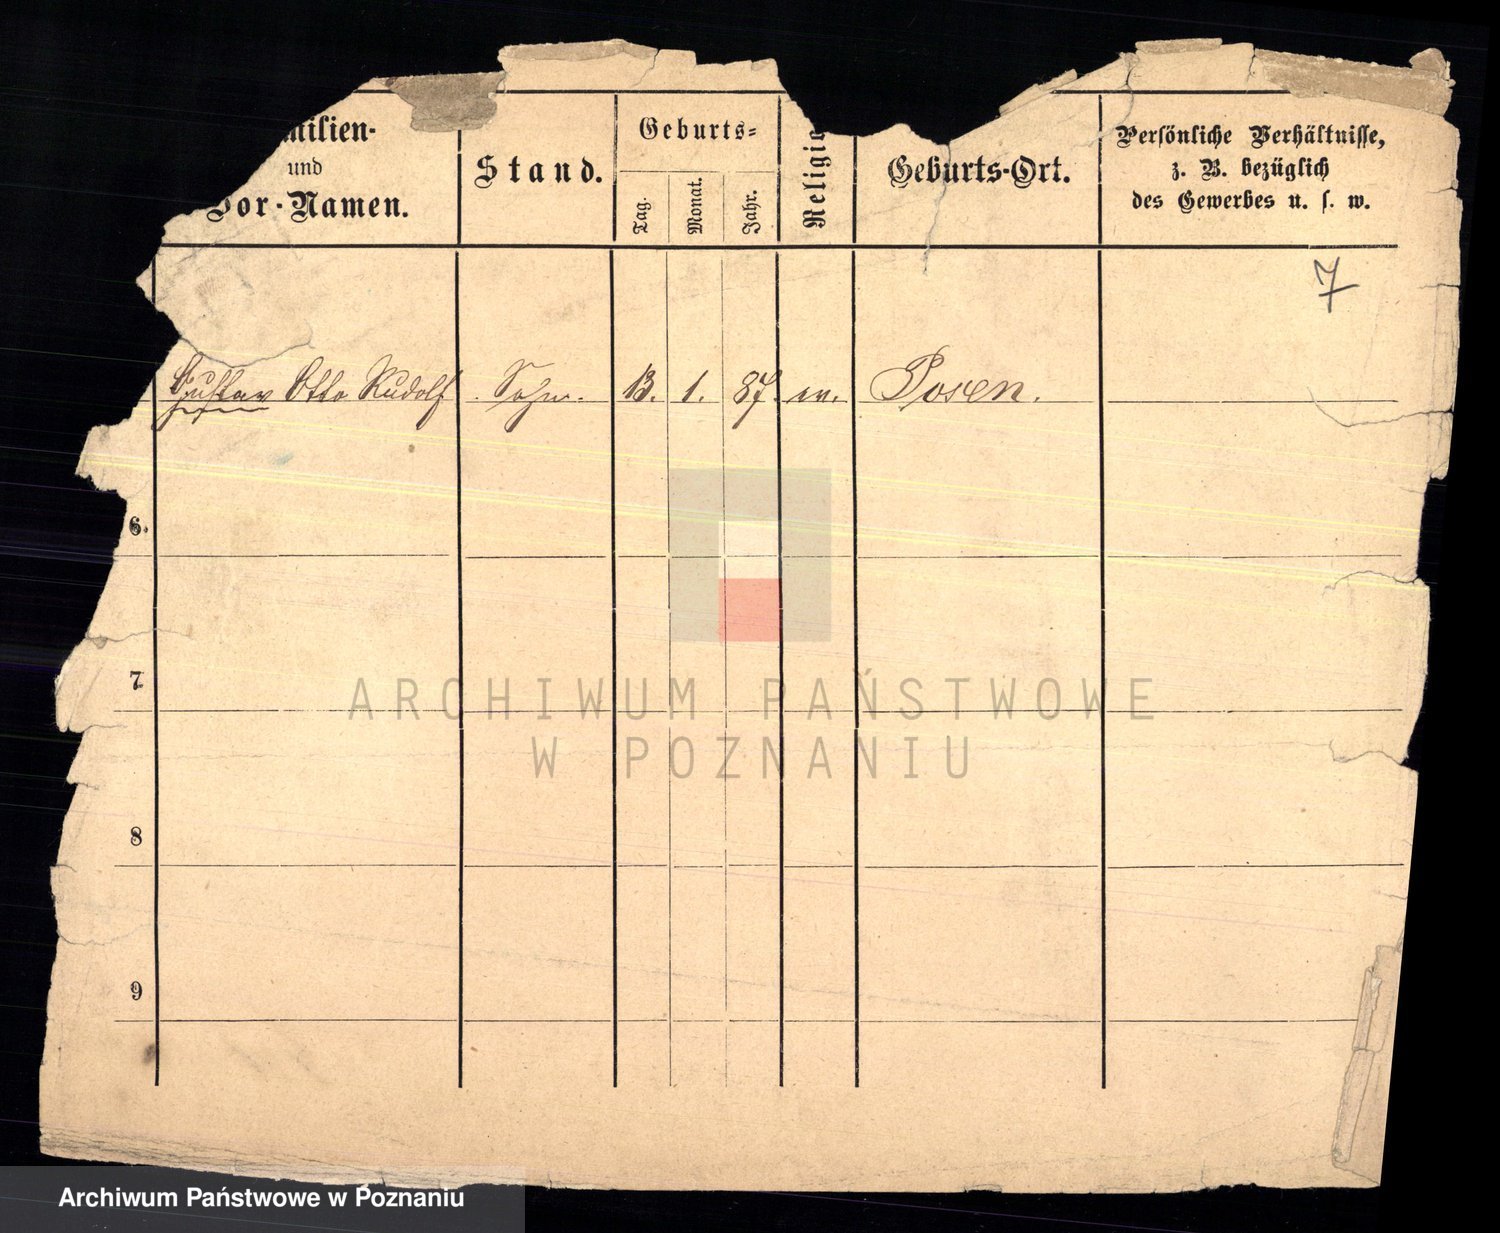 milien-
und
Vor-Namen.
Stand.
Geburts-
Tag.
Monat.
Jahr.
Religio
Geburts-Ort.
Persönliche Verhältnisse,
z. B. bezüglich
des Gewerbes u. s. w.
7
Gustav Otto Rudolf Sohn. 13. 1. 87. ev. Posen.
6.
7
8
9
ARCHIWUM PAŃSTWOWE
W POZNANIU
Archiwum Państwowe w Poznaniu